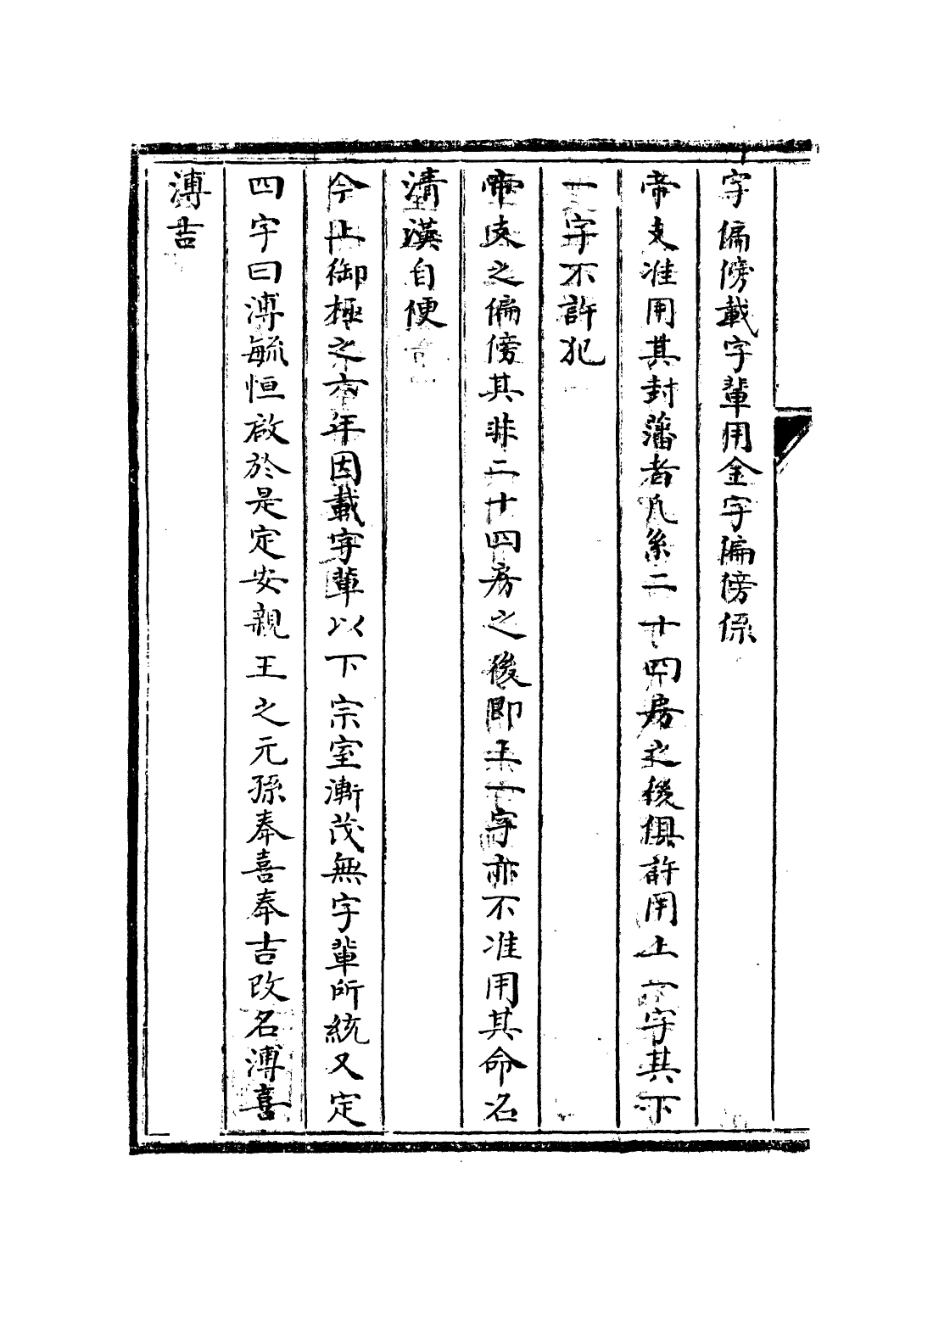 字偏傍載字輩用金字偏傍係
帝支准用其封藩者凡系二十四房之後俱許用上一字其下
一字不許犯
帝支之偏傍其非二十四房之後即上一字亦不准用其命名
清漢自便
今上御極之六年因載字輩以下宗室漸茂無字輩所統又定
四字曰溥毓恒啟於是定安親王之元孫奉喜奉吉改名溥喜
溥吉